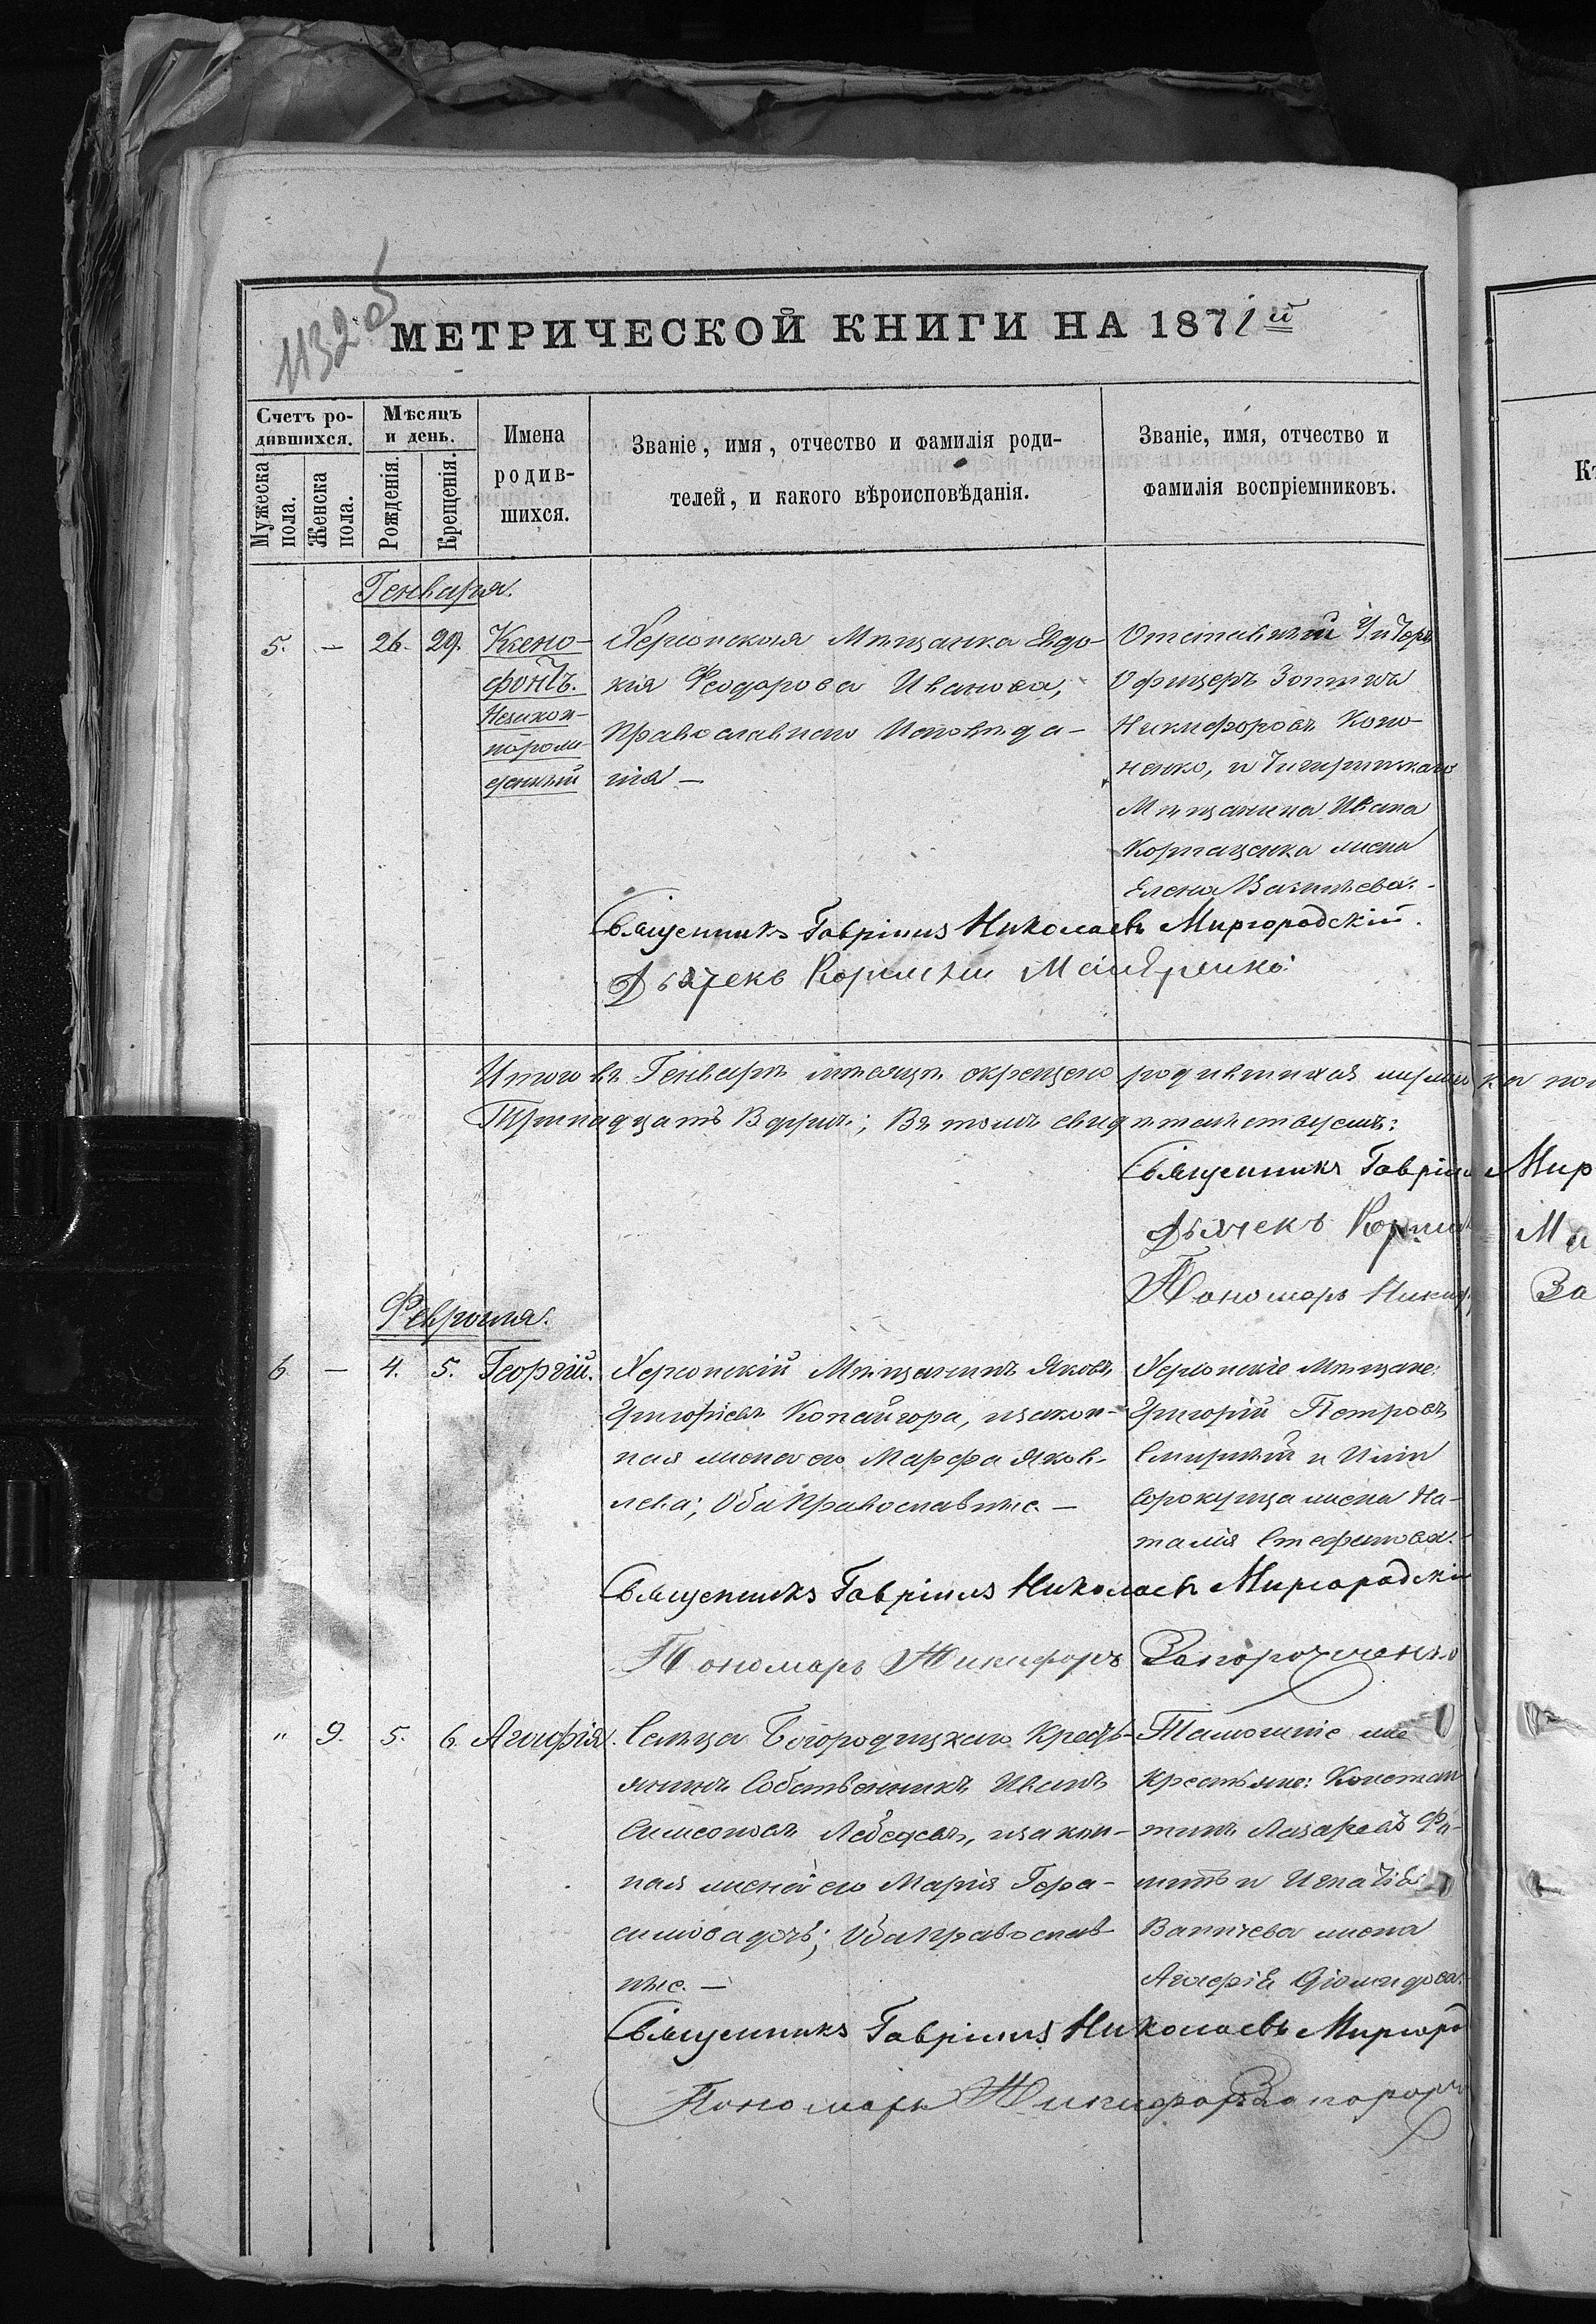 1132 об
МЕТРИЧЕСКОЙ КНИГИ НА 1871й
Счетъ ро-
дившихся.
Мѣсяцъ
и день.
Мужеска
пола.
Женска
пола.
Рожденія.
Крещенія.
Имена
родив-
шихся.
Званіе, имя, отчество и фамилія роди-
телей, и какого вѣроисповѣданія.
Званіе, имя, отчество и
фамилія воспріемниковъ.
Генваря.
5. — 26. 29.
Ксено-
фонтъ.
Незакон-
норож-
денный
Херсонская Мѣщанка Евдо-
кія Феодорова Иванова,
Православнаго Исповѣда-
нія —
Отставный Унтеръ
Офицеръ Зотикъ
Никифоровъ Коно-
ненко, и
Мѣщанина Ивана
жена
Елена Васильева.
Священникъ Гавріилъ Николаевъ Миргородскій.
Дьячекъ Корнилій
Итого въ Генварѣ мѣсяцѣ окрещено родившихся
Тринадцать Въ томъ свидѣтельствуемъ:
Священникъ Гавріилъ Мир
Дьячекъ Корнил
Пономарь Никиф За
Февраля.
6 — 4. 5. Георгій.
Херсонскій Мѣщанинъ Яковъ
Григорьевъ Копайгора, и закон-
ная жена его Марфа Яков-
лева; Оба Православные. —
Херсонскіе мѣщане:
Григорій Петровъ
Смирный и
жена На-
талія Стефанова.
Священникъ Гавріилъ Николаевъ Миргородскій
Пономарь Никифоръ Запорожченко
" 9. 5. 6. Агафія.
Сельца Богородицкаго Кресть-
янинъ Собственникъ Иванъ
Симеоновъ Лебедевъ, и закон-
ная жена его Марія Гера-
симова дочь; Оба Православ-
ные. —
Тамошніе же
Крестьяне: Констан-
тинъ Лазаревъ
и Игнатія
жена
Агафія Діомидова.
Священникъ Гавріилъ Николаевъ Миргород
Пономарь Никифоръ Запорож